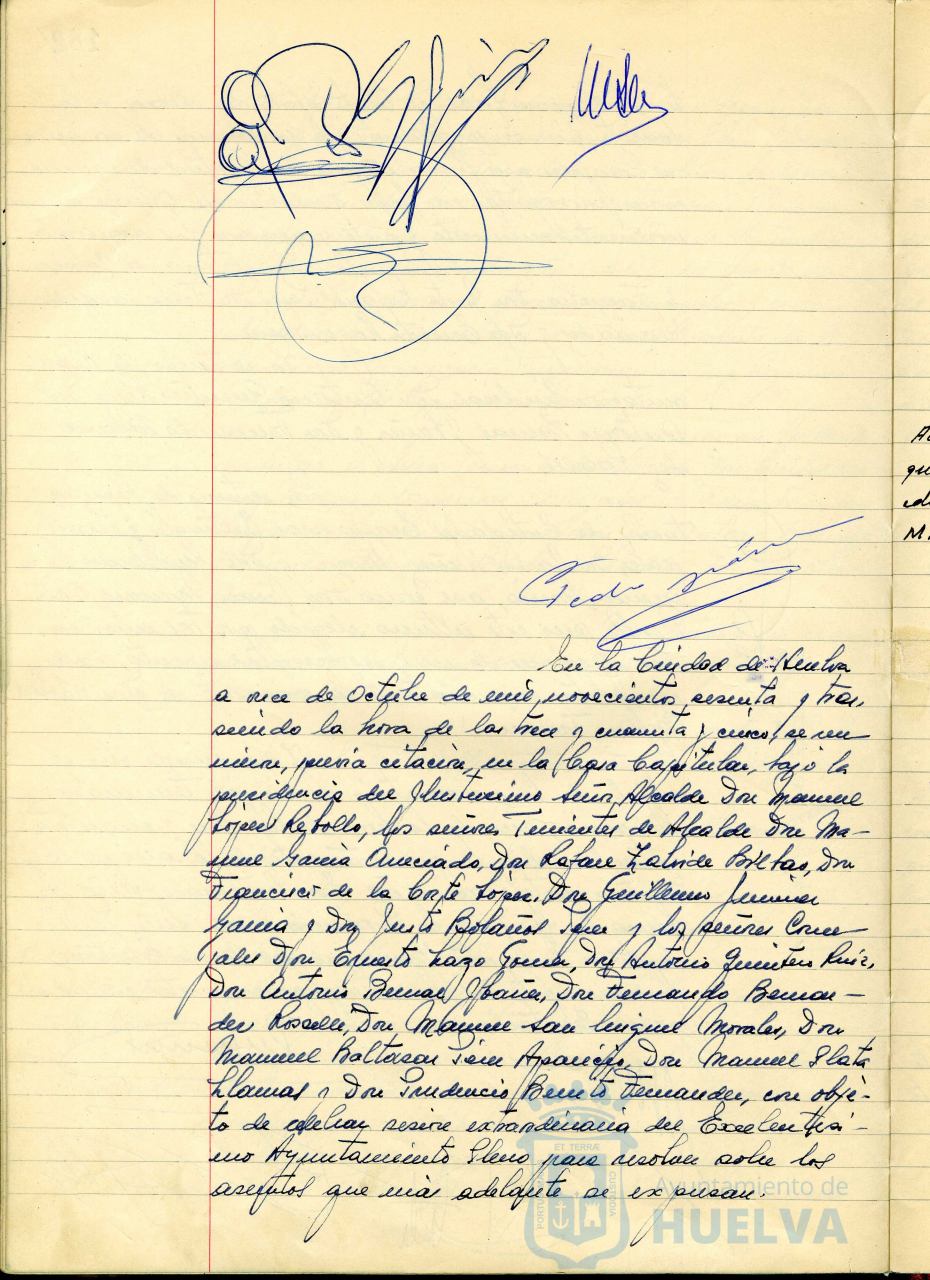 Pedro
En la Ciudad de Huelva
a once de Octubre de mil novecientos sesenta y tres,
siendo la hora de las trece y cuarenta y cinco, se reu-
nieron, previa citación, en la Casa Capitular, bajo la
presidencia del Ilustrísimo Señor Alcalde Don Manuel
López Rebollo, los señores Tenientes de Alcalde Don Ma-
nuel García Don Rafael Bilbao, Don
Francisco de la Corte López, Don Guillermo Jiménez
García y Don Justo Bolaños Pérez y los señores Conce-
jales Don Ernesto Lazo Gómez, Don Antonio Quintero Ruiz,
Don Antonio Bernal Ibáñez, Don Fernando Bernan-
dez Don Manuel San Miguel Morales, Don
Manuel Baltasar Pérez Aparicio, Don Manuel Plata
Llamas y Don Prudencio Benito Fernandez, con obje-
to de celebrar sesión extraordinaria del Excelentísi-
mo Ayuntamiento Pleno para resolver sobre los
asuntos que más adelante se expresan.
ET TERRÆ
PORTUS
CUSTODIA
Ayuntamiento de
HUELVA
qu
M.